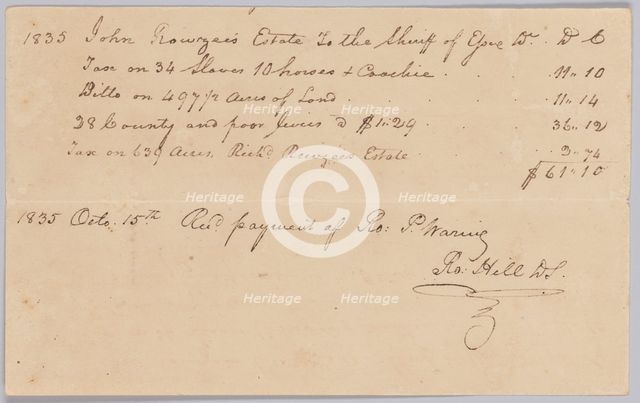 1835 John Rowzee's Estate To the Sheriff of Essex Dr. D C
Tax on 34 Slaves 10 horses + Coachee . . . 11" 10
Ditto on 497 1/2 Acres of Land . . . . 11" 14
28 County and poor levies @ $1.29 . . 36" 12
Tax on 639 Acres Richd. Rowzee's Estate . . 2" 74
$61" 10
1835 Octo. 15th Recd payment of Ro: P. Waring
Ro: Hill DS.
Heritage Heritage
Heritage Heritage
Heritage Heritage